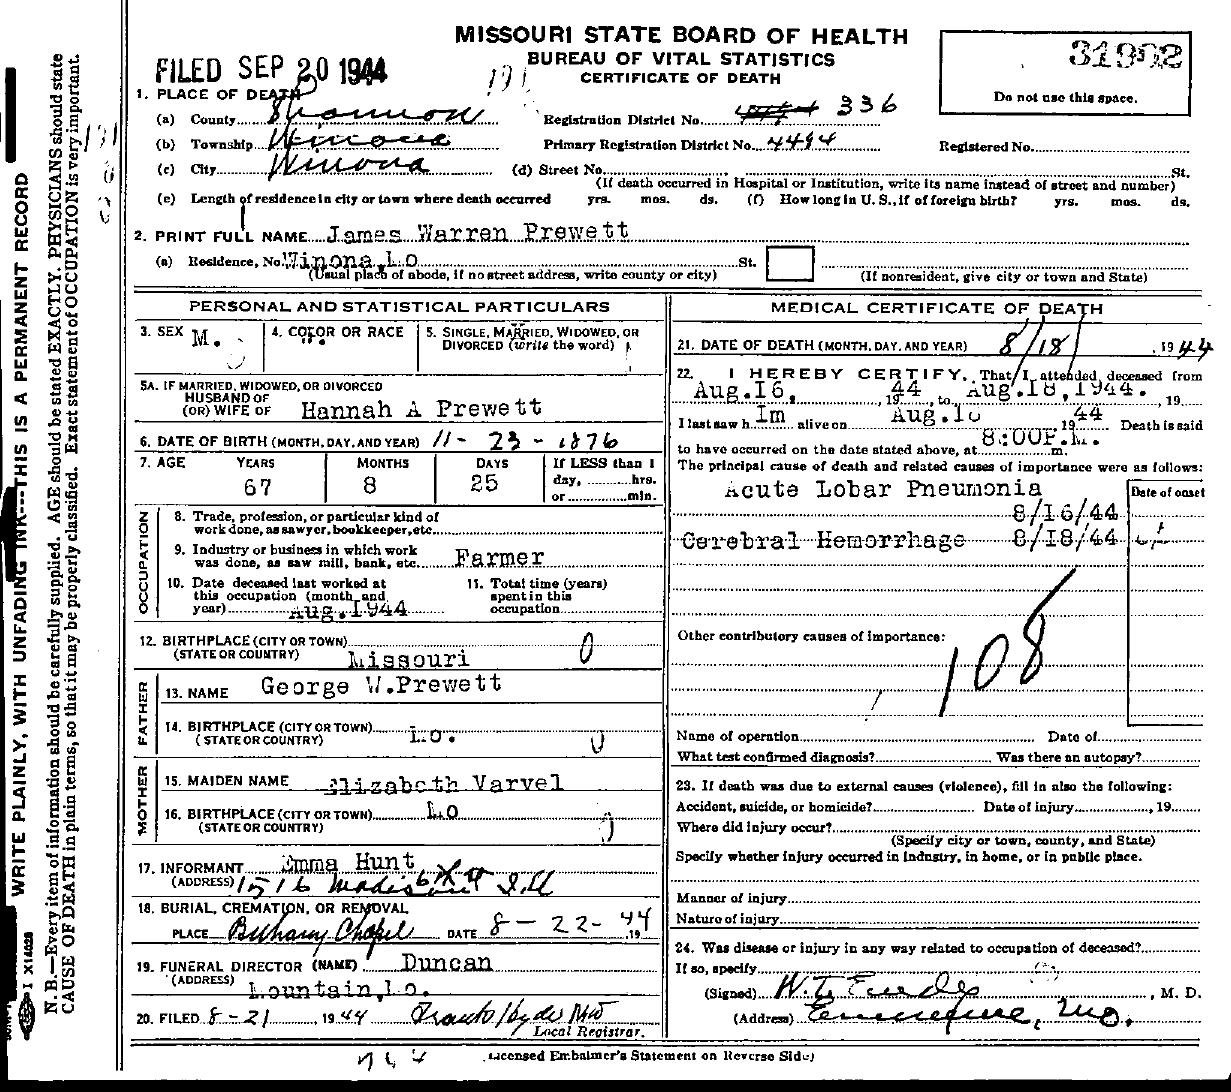 MISSOURI STATE BOARD OF HEALTH
BUREAU OF VITAL STATISTICS
CERTIFICATE OF DEATH
FILED SEP 20 1944
Do not use this space.
1. PLACE OF DEATH
(a) County Shannon Registration District No. 336
(b) Township Winona Primary Registration District No. 4494 Registered No.
(c) City Winona (d) Street No. St.
(If death occurred in Hospital or Institution, write its name instead of street and number)
(e) Length of residence in city or town where death occurred yrs. mos. ds. (f) How long in U. S., if of foreign birth? yrs. mos. ds.
2. PRINT FULL NAME James Warren Prewett
(a) Residence, No. Winona, Mo St.
(Usual place of abode, if no street address, write county or city) (If nonresident, give city or town and State)
PERSONAL AND STATISTICAL PARTICULARS
3. SEX M. 4. COLOR OR RACE 5. SINGLE, MARRIED, WIDOWED, OR
DIVORCED (write the word)
5A. IF MARRIED, WIDOWED, OR DIVORCED
HUSBAND OF
(OR) WIFE OF Hannah A Prewett
6. DATE OF BIRTH (MONTH, DAY, AND YEAR) 11-23-1876
7. AGE YEARS MONTHS DAYS If LESS than 1
67 8 25 day, hrs.
or min.
OCCUPATION
8. Trade, profession, or particular kind of
work done, as sawyer, bookkeeper, etc.
9. Industry or business in which work
was done, as saw mill, bank, etc. Farmer
10. Date deceased last worked at
this occupation (month and
year) Aug.1944
11. Total time (years)
spent in this
occupation
12. BIRTHPLACE (CITY OR TOWN) 0
(STATE OR COUNTRY) Missouri
FATHER
13. NAME George W.Prewett
14. BIRTHPLACE (CITY OR TOWN) Mo.
(STATE OR COUNTRY) 0
MOTHER
15. MAIDEN NAME Elizabeth Varvel
16. BIRTHPLACE (CITY OR TOWN) Mo
(STATE OR COUNTRY) 0
17. INFORMANT Emma Hunt
(ADDRESS) 1516 Madison
18. BURIAL, CREMATION, OR REMOVAL
PLACE Bethany Chapel DATE 8-22-1944
19. FUNERAL DIRECTOR (NAME) Duncan
(ADDRESS) Mountain, Mo.
20. FILED 8-21, 1944
Local Registrar.
MEDICAL CERTIFICATE OF DEATH
21. DATE OF DEATH (MONTH, DAY, AND YEAR) 8/18/ 1944
22. I HEREBY CERTIFY, That I attended deceased from
Aug.16, 1944, to Aug.18,1944., 19
I last saw him alive on Aug.18 1944 Death is said
to have occurred on the date stated above, at 8:00P.M. m.
The principal cause of death and related causes of importance were as follows:
Acute Lobar Pneumonia Date of onset
8/16/44
Cerebral Hemorrhage 8/18/44
Other contributory causes of importance:
108
Name of operation Date of
What test confirmed diagnosis? Was there an autopsy?
23. If death was due to external causes (violence), fill in also the following:
Accident, suicide, or homicide? Date of injury, 19
Where did injury occur?
(Specify city or town, county, and State)
Specify whether injury occurred in industry, in home, or in public place.
Manner of injury
Nature of injury
24. Was disease or injury in any way related to occupation of deceased?
If so, specify
(Signed) , M. D.
(Address) Eminence, Mo.
(Licensed Embalmer's Statement on Reverse Side)
WRITE PLAINLY, WITH UNFADING INK---THIS IS A PERMANENT RECORD
N. B.—Every item of information should be carefully supplied. AGE should be stated EXACTLY. PHYSICIANS should state
CAUSE OF DEATH in plain terms, so that it may be properly classified. Exact statement of OCCUPATION is very important.
I X14028